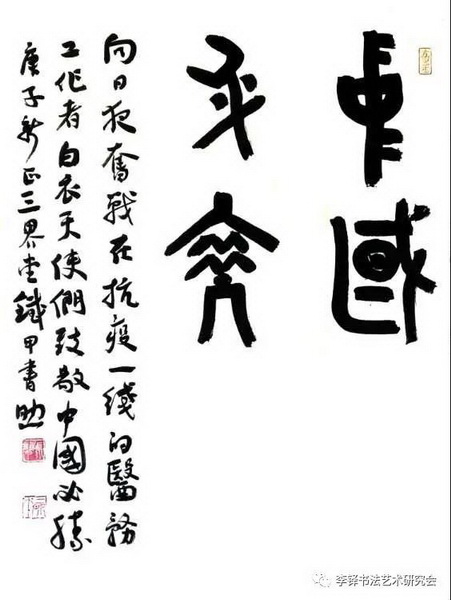 國
向日夜奮戰在抗疫一綫的醫務
工作者白衣天使們致敬中國必勝
庚子新正三界堂鐵甲書
李铎书法艺术研究会